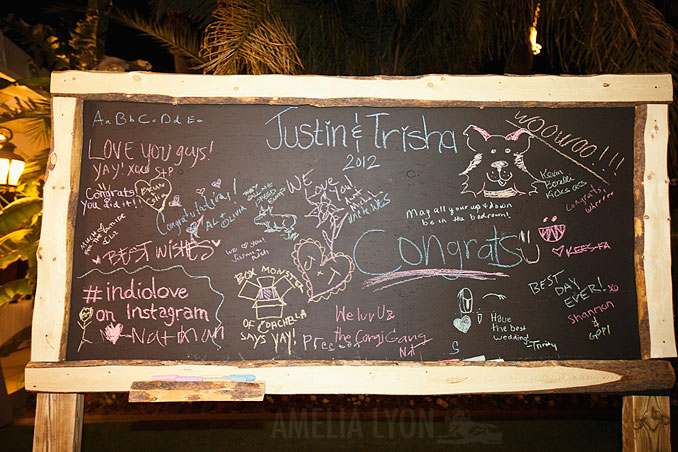 Aa Bb Cc Dd Ee
Justin & Trisha
2012
WOOWOO!!!
LOVE YOU GUYS!
YAY! XOXO STP
Congrats!
You did it!
Congratulations!
AL & OLIVIA
WE
Love
You
Kevin
Borella
Kicks ass
Congrats!
May all your up & down
be in the bedroom!
BEST wishes
we ♡ you!
Congrats!
KEES-FA
#indiolove
on instagram
-Natman
BOX MONSTER
OF COACHELLA
SAYS YAY!
We luv Uz
the Corgi Gang
Nat
Have
the best
wedding!
-Trinity
BEST DAY
EVER! XO
Shannon
&
AMELIA LYON